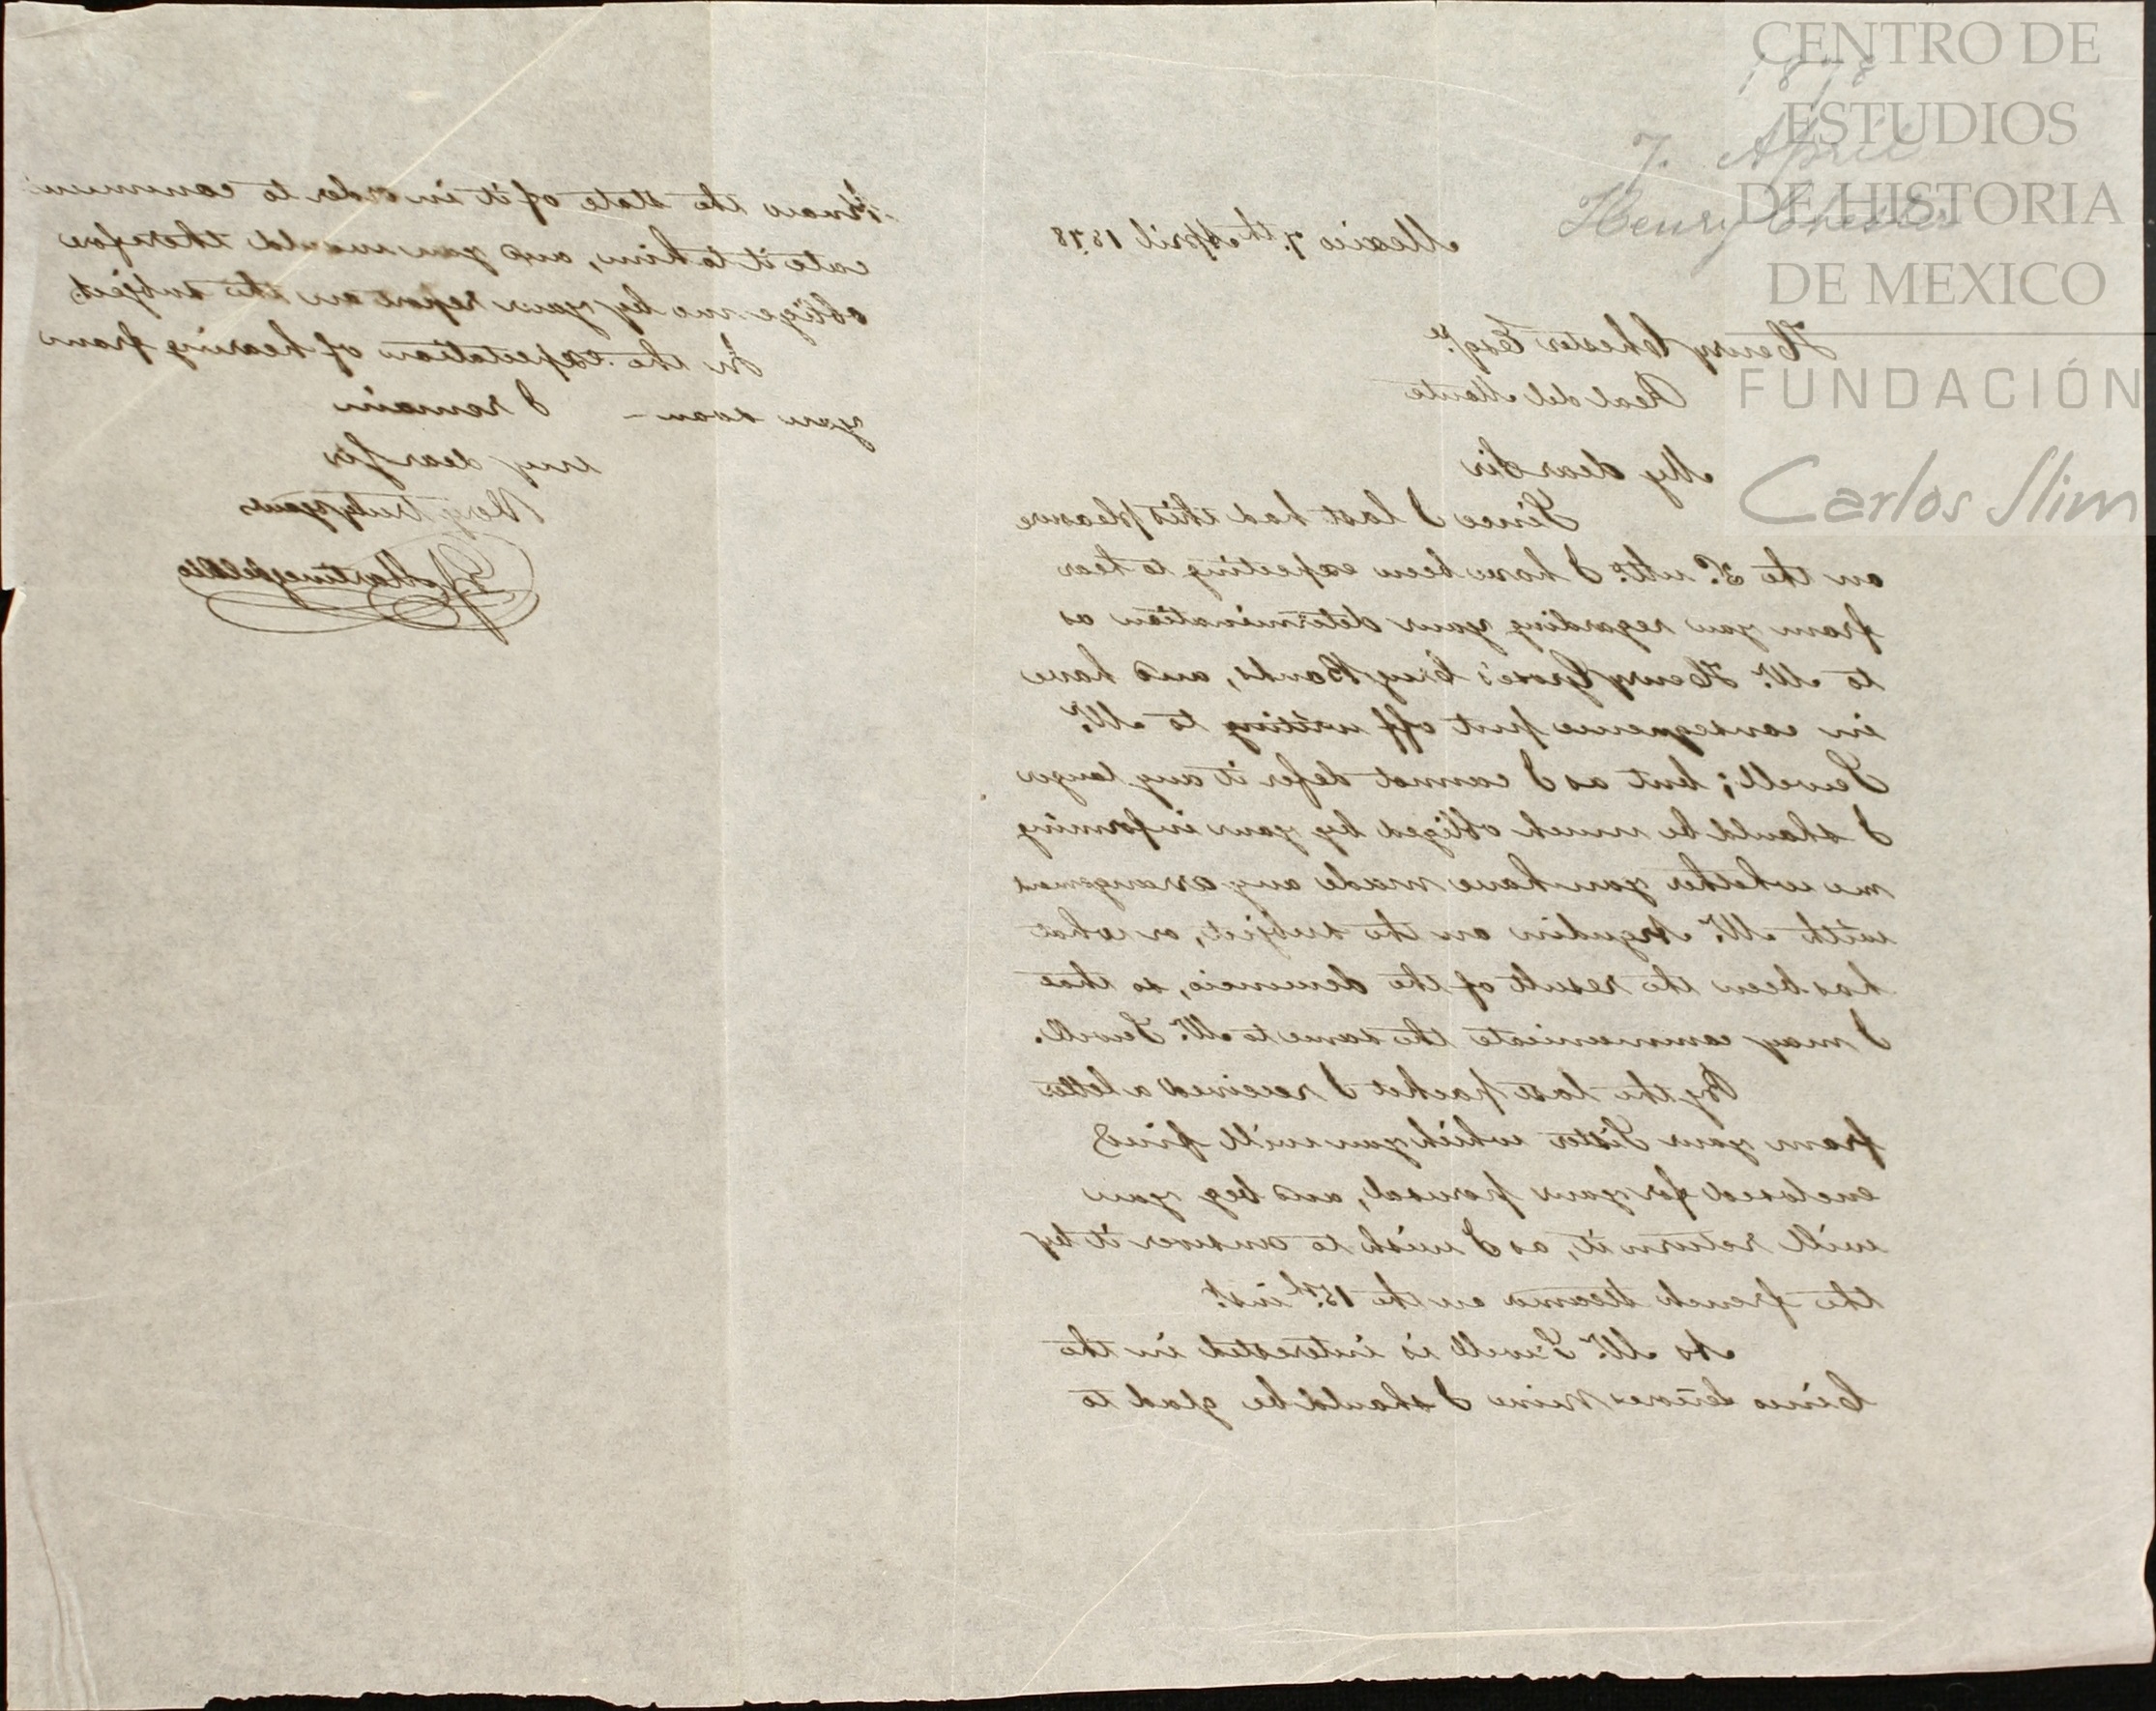 CENTRO DE
ESTUDIOS
DE HISTORIA
DE MEXICO
FUNDACIÓN
Carlos Slim
1878
7. April
Henry Chester
Mexico 7th April 1878
Henry Chester Esqre.
Real del Monte
My dear Sir
Since I last had this pleasure
on the ulto. I have been expecting to hear
from you regarding your determination as
to Mr. Henry Bonds, and have
in consequence put off writing to Mr.
Sewell; but as I cannot defer it any longer
I should be much obliged by your informing
me whether you have made any arrangement
with Mr. Argudin on the subject, or what
has been the result of the denuncio, so that
I may communicate the same to Mr. Sewell.
By the last packet I received a letter
from your Sister which you will find
enclosed for your perusal, and beg you
will return it, as I wish to answer it by
the french steamer on the 15th. inst.
As Mr. Sewell is interested in the
Cinco Señores Mine I should be glad to
know the state of it in order to communi
cate it to him, and you would therefore
oblige me by your report on the subject.
In the expectation of hearing from
you soon — I remain
my dear Sir
Very truly yours
Martinez del Rio